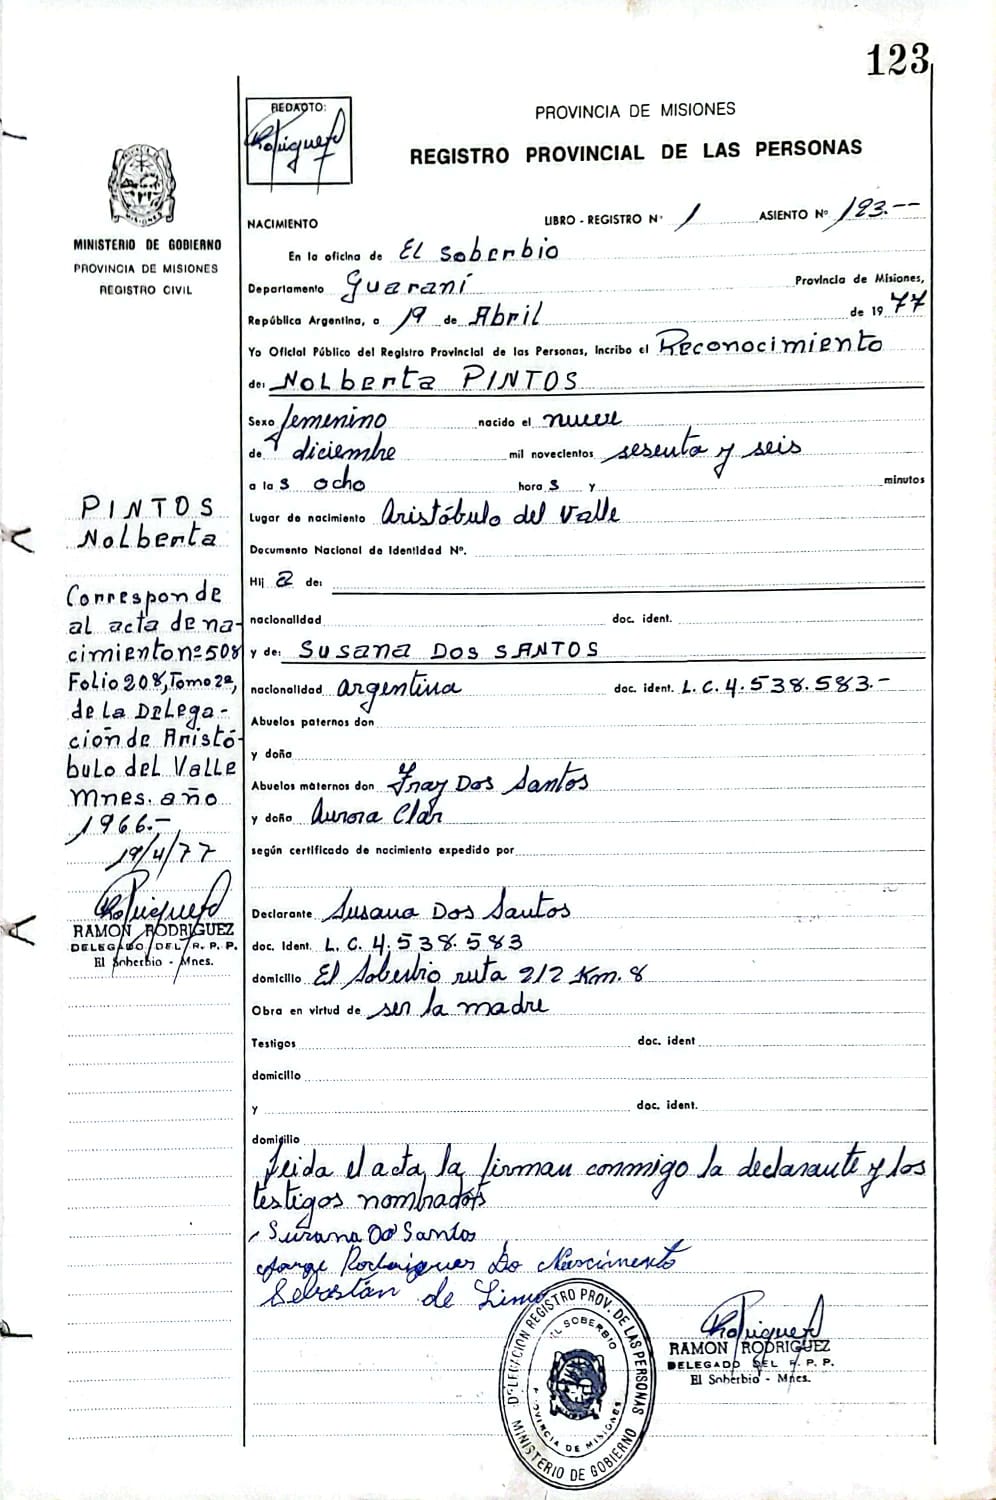 123
REDACTO:
PROVINCIA DE MISIONES
REGISTRO PROVINCIAL DE LAS PERSONAS
MINISTERIO DE GOBIERNO
PROVINCIA DE MISIONES
REGISTRO CIVIL
NACIMIENTO LIBRO - REGISTRO N° 1 ASIENTO N° 123.--
En la oficina de El Soberbio
Departamento Guaraní Provincia de Misiones,
República Argentina, a 19 de Abril de 1977
Yo Oficial Público del Registro Provincial de las Personas, incribo el Reconocimiento
de: Nolberta PINTOS
Sexo femenino nacido el nueve
de diciembre mil novecientos sesenta y seis
a las ocho horas y minutos
Lugar de nacimiento Aristóbulo del Valle
Documento Nacional de Identidad N°.
Hija de:
nacionalidad doc. ident.
y de: Susana Dos SANTOS
nacionalidad argentina doc. ident. L.C. 4.538.583.-
Abuelos paternos don
y doña
Abuelos maternos don Fray Dos Santos
y doña Aurora Clar
según certificado de nacimiento expedido por
Declarante Susana Dos Santos
doc. Ident. L.C. 4.538.583
domicilio El Soberbio ruta 212 Km. 8
Obra en virtud de ser la madre
Testigos doc. ident
domicilio
y doc. ident.
domicilio
Leida el acta, la firman conmigo la declarante y los
testigos nombrados
Susana Do Santos
Jorge Rodrigues Do Nascimento
Sebastán de Lima
PINTOS
Nolberta
Corresponde
al acta de na-
cimiento nº 508
Folio 208, Tomo 2º,
de la Delega-
ción de Aristó-
bulo del Valle
Mnes. año
1966.-
19/4/77
RAMON RODRIGUEZ
DELEGADO DEL R. P. P.
El Soberbio - Mnes.
DELEGACION REGISTRO PROV. DE LAS PERSONAS
EL SOBERBIO
PROVINCIA DE MISIONES
MINISTERIO DE GOBIERNO
RAMON RODRIGUEZ
DELEGADO DEL R. P. P.
El Soberbio - Mnes.